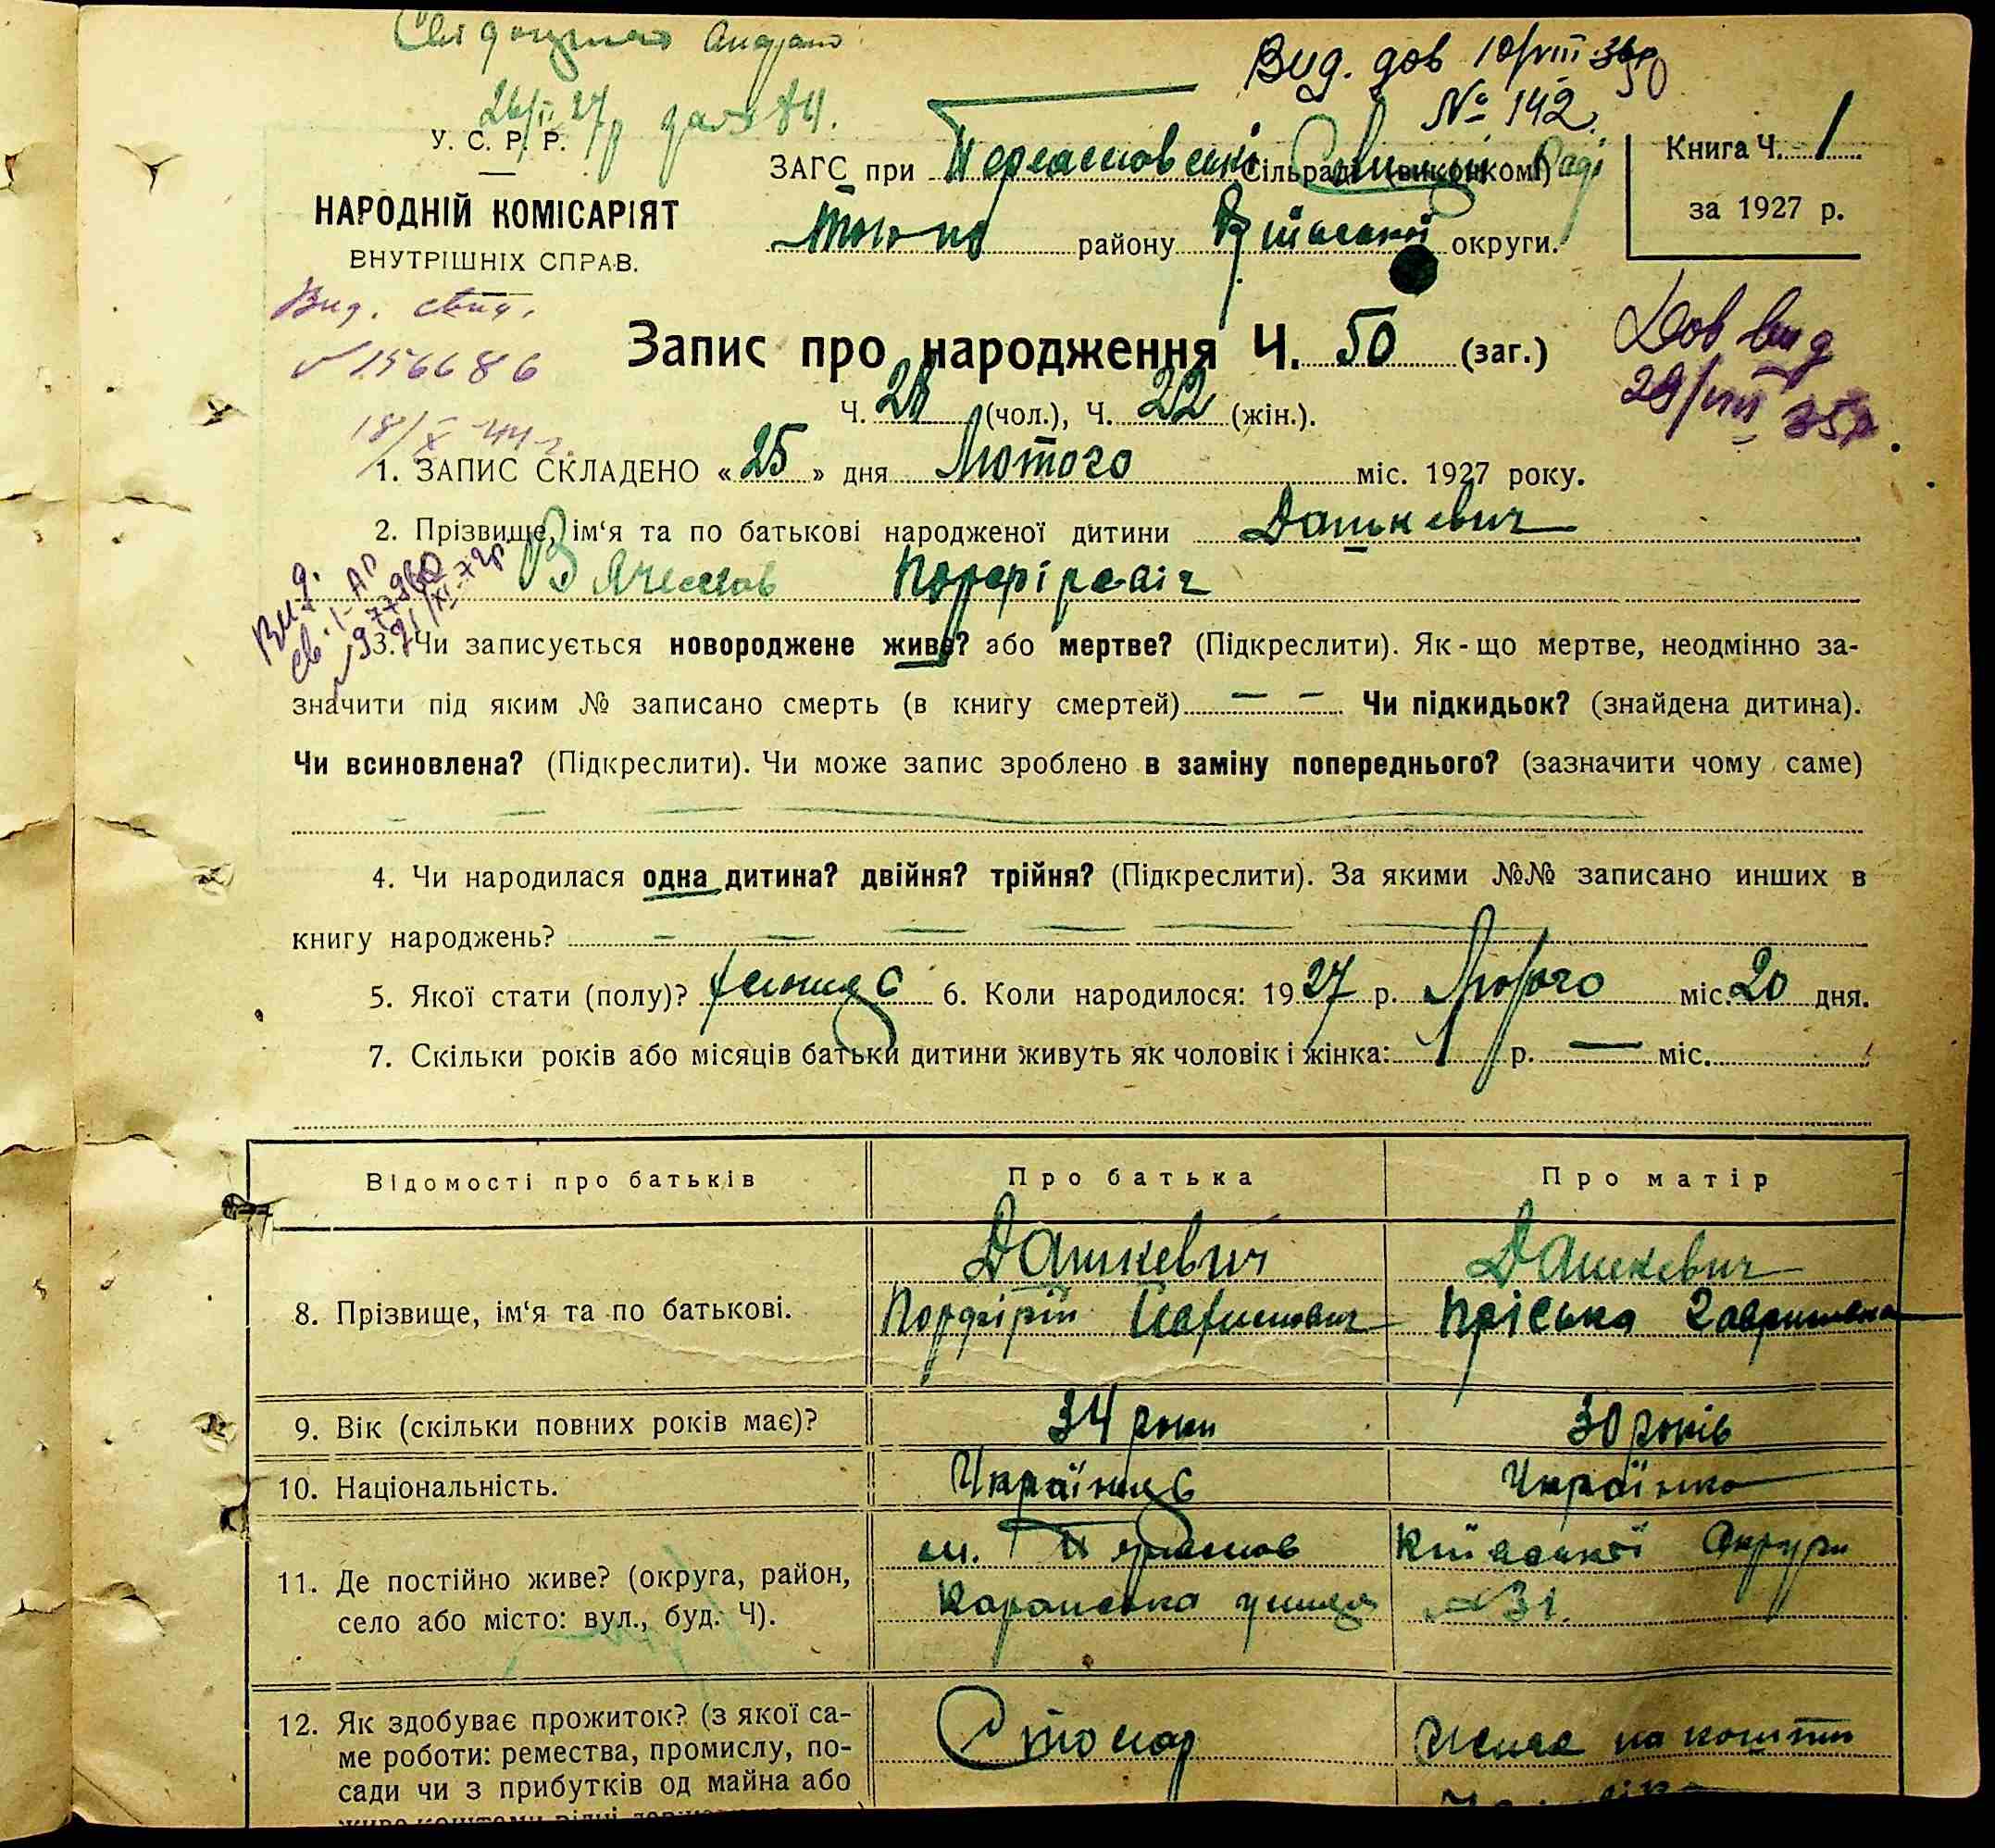 Вид. дов 10/VIII
№ 142
26/II 27р
У. С. Р. Р.
НАРОДНІЙ КОМІСАРІЯТ
ВНУТРІШНІХ СПРАВ.
ЗАГС при Сільраді (виконкомі) Раді
того района району Київської округи.
Книга Ч. 1
за 1927 р.
Вид. свид.
№ 156686
18/X 44 г.
Запис про народження Ч. 50 (заг.)
Ч. 28 (чол.), Ч. 22 (жін.).
Дов вид
29/VIII 35р.
1. ЗАПИС СКЛАДЕНО « 25 » дня Лютого міс. 1927 року.
2. Прізвище, ім'я та по батькові народженої дитини Дашкевич
Вячеслав Порфірєвіч
Вид.
св. I-АП
977960
21/XI-72р
3. Чи записується новороджене живе? або мертве? (Підкреслити). Як-що мертве, неодмінно за-
значити під яким № записано смерть (в книгу смертей) — — Чи підкидьок? (знайдена дитина).
Чи всиновлена? (Підкреслити). Чи може запис зроблено в заміну попереднього? (зазначити чому саме)
4. Чи народилася одна дитина? двійня? трійня? (Підкреслити). За якими №№ записано инших в
книгу народжень? — — — — —
5. Якої стати (полу)? 6. Коли народилося: 1927 р. Лютого міс. 20 дня.
7. Скільки років або місяців батьки дитини живуть як чоловік і жінка: 1 р. — міс.
Відомості про батьків Про батька Про матір
8. Прізвище, ім'я та по батькові. Дашкевич Порфірій Дашкевич Пріська Гаврилівна
9. Вік (скільки повних років має)? 34 роки 30 років
10. Національність. Українець Українка
11. Де постійно живе? (округа, район, село або місто: вул., буд. Ч). м. Київської Округи
Каранська улиця №31.
12. Як здобуває прожиток? (з якої са- Столяр Живе на кошти
ме роботи: ремества, промислу, по-
сади чи з прибутків од майна або